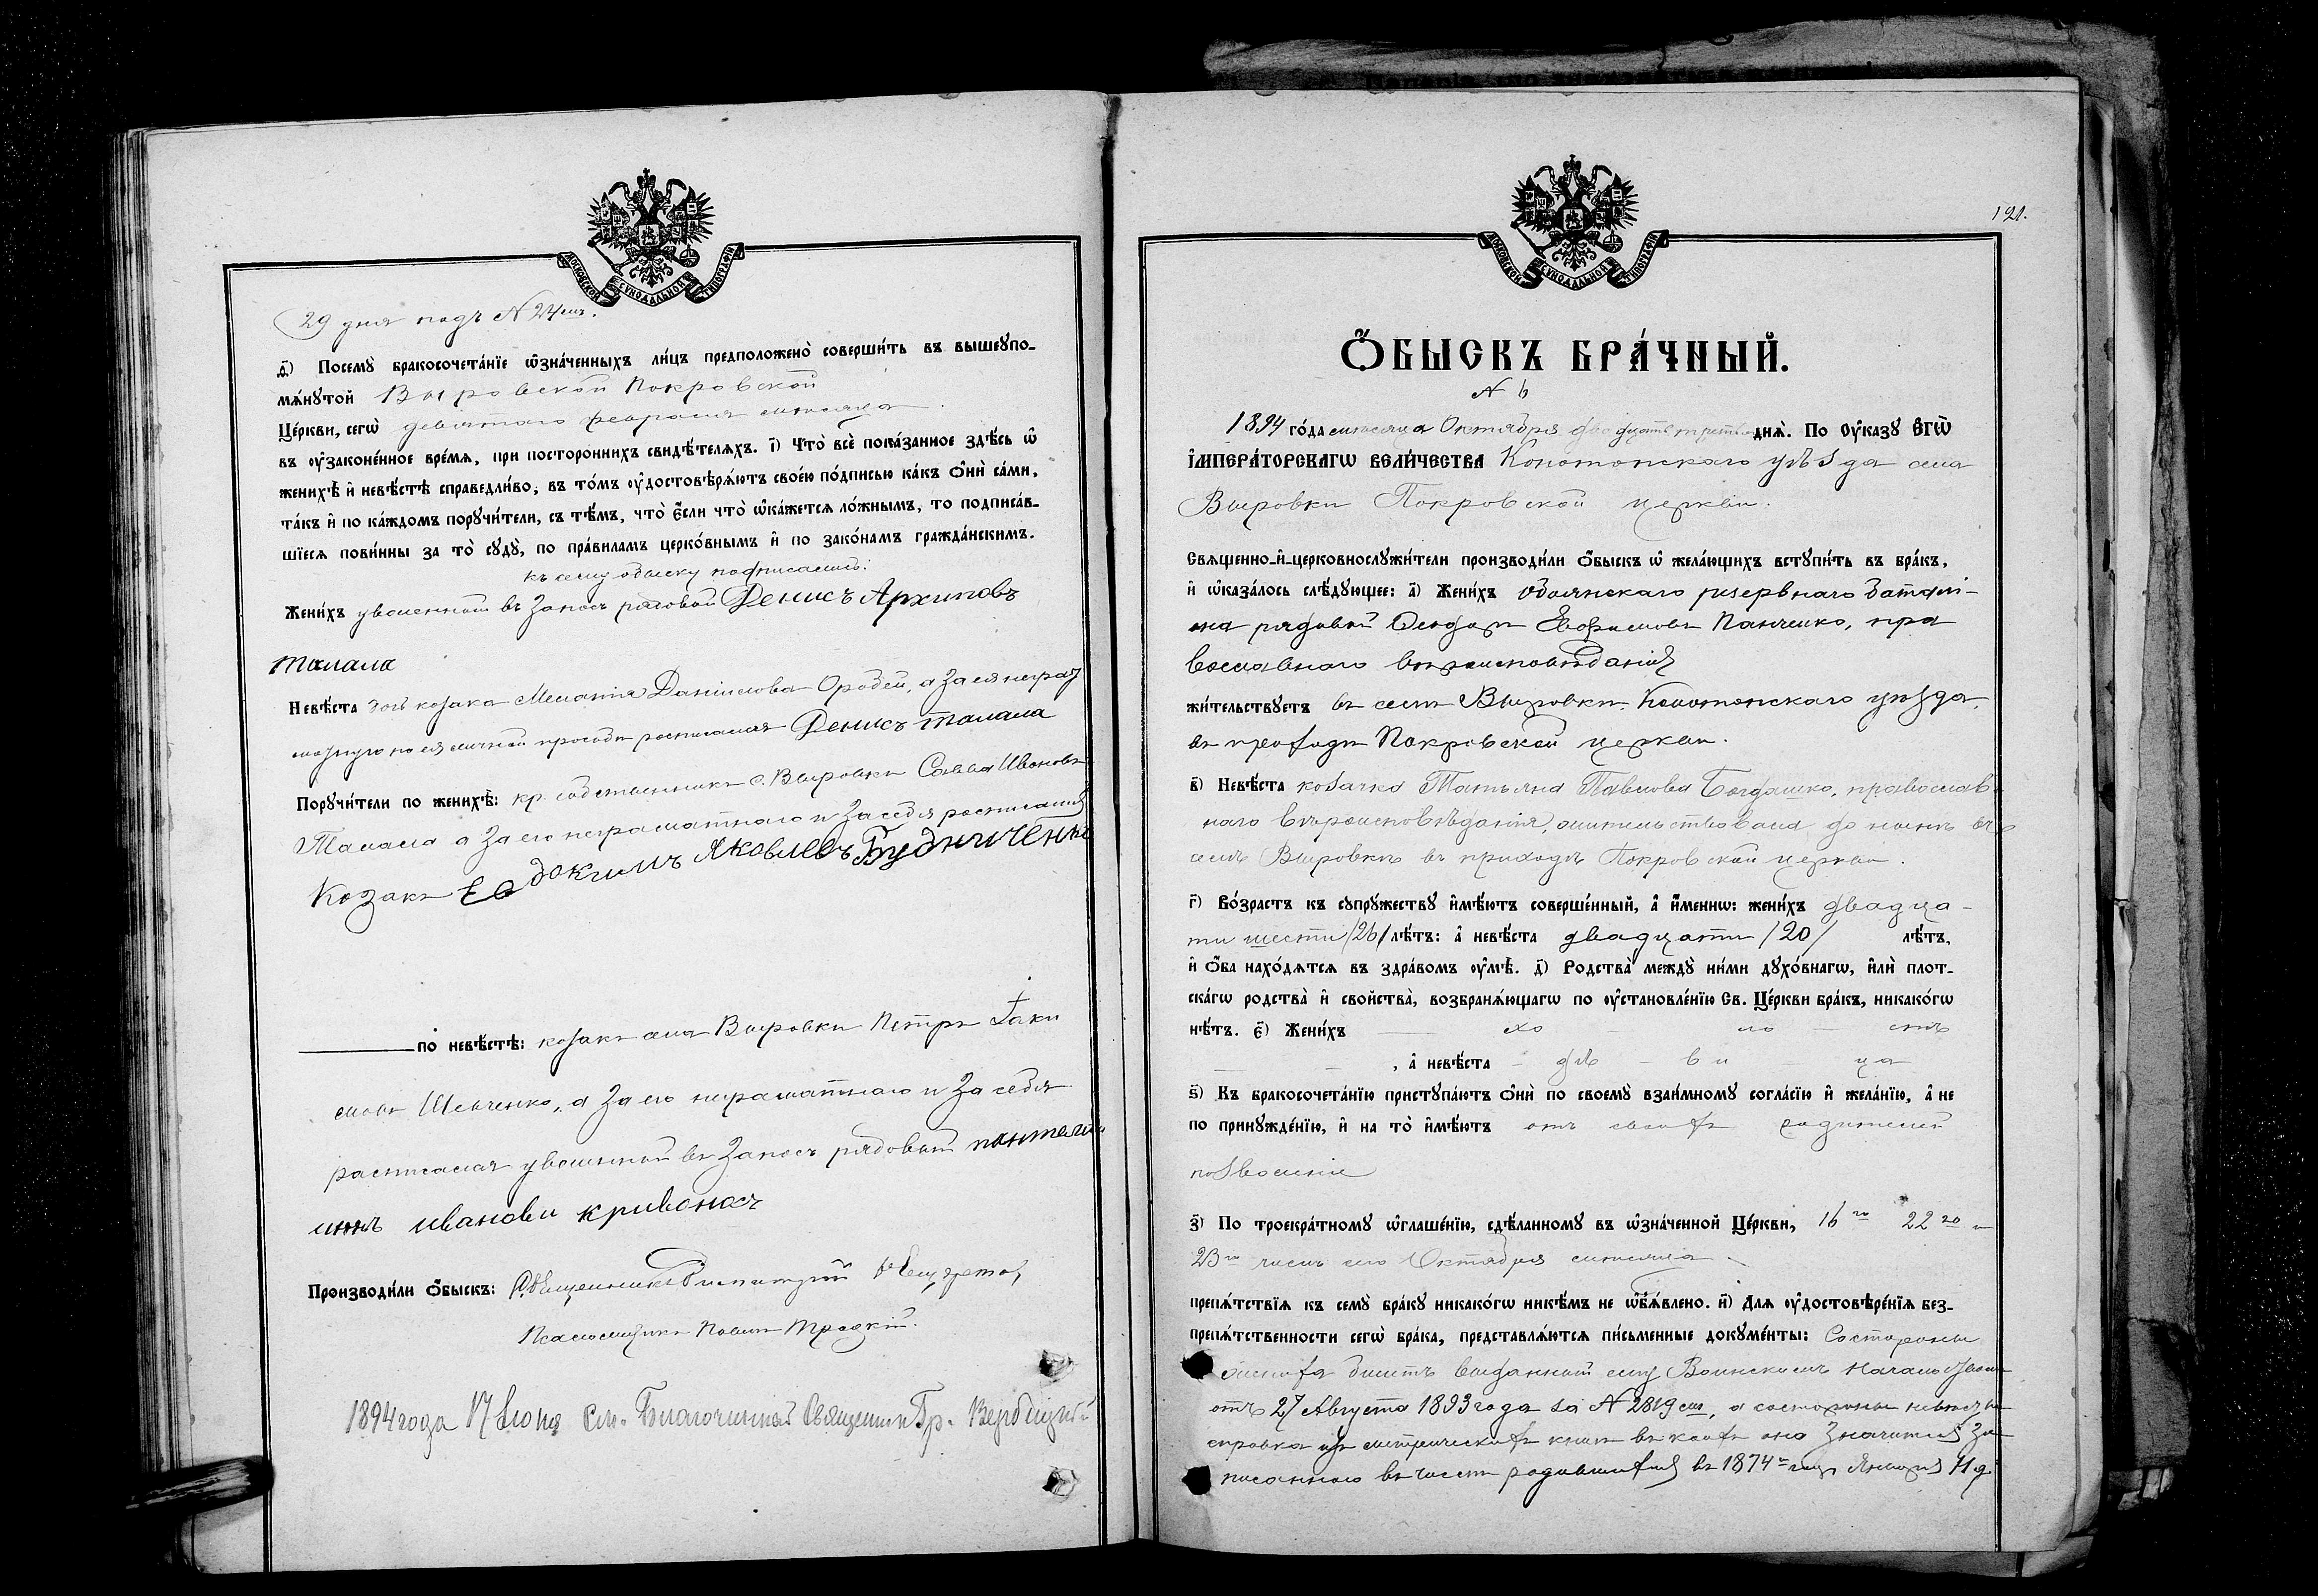 МОСКОВСКОЙ СѴНОДАЛЬНОЙ ТИПОГРАФІИ
29 дня подъ N 24мъ.
д҃) Посемꙋ̀ бракосочета́нїе ѿзна́ченныхъ ли́цъ предположено̀ соверши́ть въ вышеꙋпо-
мѧ́нꙋтой Выровской Покровской
Це́ркви, сегѡ̀ девятаго февраля мѣсяца
въ ᲂу҆законе́нное вре́мѧ, при посторо́ннихъ свидѣ́телѧхъ. і҃) Что̀ всѐ пока́занное здѣ́сь ѡ҆
женихѣ̀ и҆ невѣ́стѣ справедли́во, въ то́мъ ᲂу҆достовѣрѧ́ютъ свое́ю по́дписью ка́къ Ѻ҆нѝ са́ми,
та́къ и҆ по ка́ждомъ порꙋчи́тели, съ тѣ́мъ, что̀ є҆́сли что̀ ѡ҆ка́жетсѧ ло́жнымъ, то подписа́в-
шїесѧ пови́нны за то̀ сꙋдꙋ̀, по пра́виламъ церко́внымъ и҆ по зако́намъ гражда́нскимъ.
къ сему обыску подписались:
Жени́хъ уволенный въ запасъ рядовой Денисъ Архиповъ
талала
Невѣ́ста дочь козака Меланія Даніилова Оробей, а за ея неграм
мотную по ея личной просьбѣ росписался Денисъ талала
Порꙋчи́тели по женихѣ̀: кр. собственникъ с. Выровки Савва Ивановъ
Талала а за его неграмотнаго и за себя росписался
Козакъ Евдокимъ Яковлевъ Будниченко
по невѣ́стѣ: козакъ села Выровки Петръ Іаки
мовъ Шевченко, а за его неграмотнаго и за себя
расписался уволенный въ запасъ рядовый пантелей
иванови кривоносъ
Производи́ли Ѻ҆́быскъ: Священникъ
Псаломщикъ Павелъ Троцкій.
1894 года 17 Іюня См. Благочинный Священникъ Гр. Вербицкій
МОСКОВСКОЙ СѴНОДАЛЬНОЙ ТИПОГРАФІИ
121.
Ѻ҆́БЫСКЪ БРА́ЧНЫЙ.
N 6
1894 го́да мѣсяца Октября двадцать третьяго днѧ̀. По Оу҆ка́зꙋ Є҆ГѠ̀
І҆МПЕРА́ТОРСКАГѠ ВЕЛИ́ЧЕСТВА Конотопскаго уѣзда села
Выровки Покровской церкви.
Свѧщенно-и҆-церковнослꙋжи́тели производи́ли Ѻ҆́быскъ ѡ҆ жела́ющихъ встꙋпи́ть въ бра́къ,
и҆ ѡ҆каза́лось слѣ́дꙋющее: а҃) Жени́хъ Обоянскаго резервнаго баталі-
она рядовой Ѳеодоръ Евфимовъ Панченко, пра
вославнаго вѣроисповѣданія
жи́тельствꙋетъ въ селѣ Выровкѣ Конотопскаго уѣзда,
въ приходѣ Покровской церкви.
в҃) Невѣ́ста козачка Татьяна Павлова Богдашко, православ
наго вѣроисповѣданія, жительствовала до нынѣ въ
селѣ Выровкѣ въ приходѣ Покровской церкви.
г҃) Во́зрастъ къ сꙋпрꙋ́жествꙋ и҆мѣ́ютъ соверше́нный, а҆ и҆́меннѡ: жени́хъ двадца-
ти шести /26/ лѣ́тъ: а҆ невѣ́ста двадцати /20/ лѣ́тъ,
и҆ Ѻ҆́ба нахо́дѧтсѧ въ здра́вомъ ᲂу҆мѣ̀. д҃) Родства̀ междꙋ̀ ни́ми дꙋхо́внагѡ, и҆лѝ плот-
ска́гѡ родства̀ и҆ свойства̀, возбранѧ́ющагѡ по ᲂу҆становле́нїю Св. Це́ркви бра́къ, никако́гѡ
нѣ́тъ. є҃) Жени́хъ хо - ло - стъ
, а҆ невѣ́ста - дѣ - ви - ца
ѕ҃) Къ бракосочета́нїю пристꙋпа́ютъ Ѻ҆нѝ по своемꙋ̀ взаи́мномꙋ согла́сїю и҆ жела́нїю, а҆ не
по принꙋжде́нїю, и҆ на то̀ и҆мѣ́ютъ отъ своихъ родителей
позволеніе
з҃) По троекра́тномꙋ ѡ҆глаше́нїю, сдѣ́ланномꙋ въ ѡ҆зна́ченной Це́ркви, 16го 22го и
23го числъ сего Октября мѣсяца
препѧ́тствїѧ къ семꙋ̀ бра́кꙋ никако́гѡ никѣ́мъ не ѡ҆б̾ѧ́влено. и҃) Длѧ ᲂу҆достовѣре́нїѧ без-
препѧ́тственности сегѡ̀ бра́ка, представлѧ́ютсѧ пи́сьменные докꙋме́нты: Со стороны
жениха билетъ выданный ему Воинскимъ Началь
отъ 27 Августа 1893 года за N 2819мъ, а со стороны невѣсты
справка изъ метрическихъ книгъ въ коихъ она значится за
писанною въ числѣ родившихся въ 1874мъ году Января 11 д